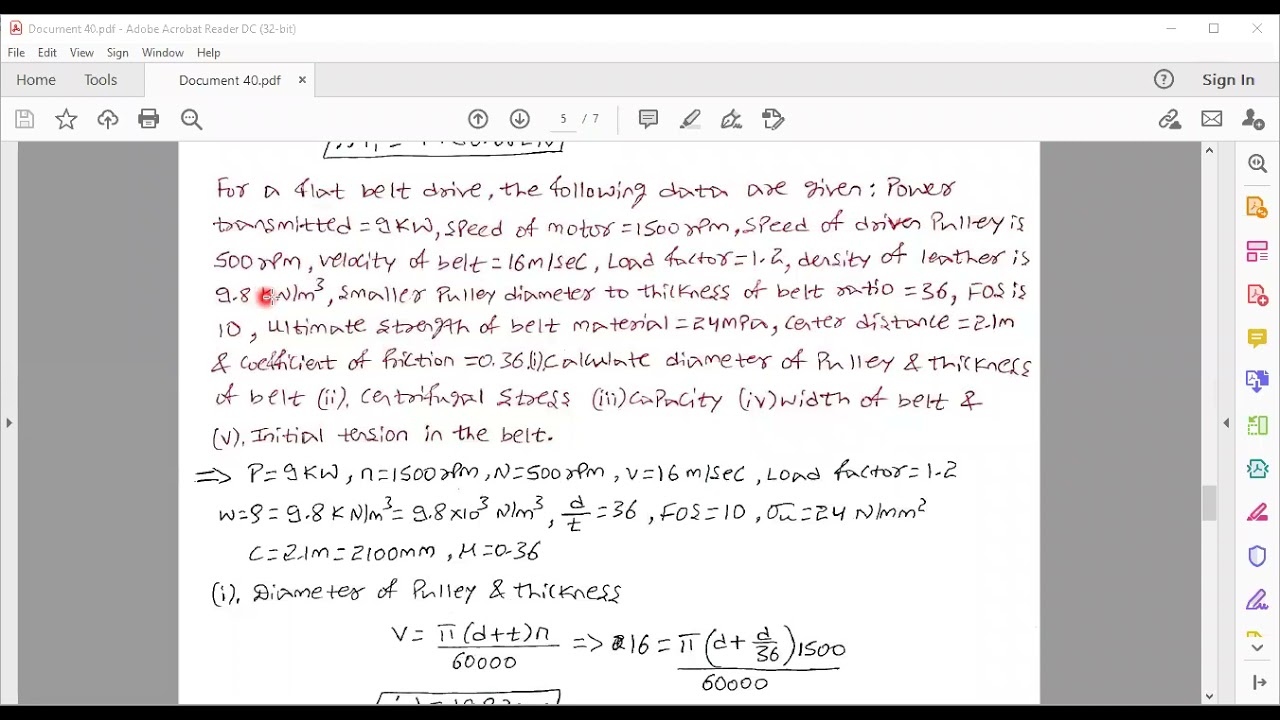 Document 40.pdf - Adobe Acrobat Reader DC (32-bit)
File Edit View Sign Window Help
Home Tools Document 40.pdf × Sign In
5 / 7
For a flat belt drive, the following data are given: Power
transmitted = 9KW, speed of motor = 1500 rpm, speed of driven Pulley is
500 rpm, velocity of belt = 16 m/sec, Load factor = 1.2, density of leather is
9.8 KN/m³, smaller Pulley diameter to thickness of belt ratio = 36, FOS is
10, ultimate strength of belt material = 24MPa, center distance = 2.1m
& coefficient of friction = 0.36. (i) Calculate diameter of Pulley & thickness
of belt (ii). centrifugal stress (iii) capacity (iv) width of belt &
(v). Initial tension in the belt.
=> P = 9 KW, n = 1500 rpm, N = 500 rpm, V = 16 m/sec, Load factor = 1.2
w = S = 9.8 KN/m³ = 9.8 × 10³ N/m³, d/t = 36, FOS = 10, σu = 24 N/mm²
C = 2.1m = 2100mm, μ = 0.36
(i). Diameter of Pulley & thickness
V = π(d+t)n/60000 => 16 = π(d + d/36)1500/60000